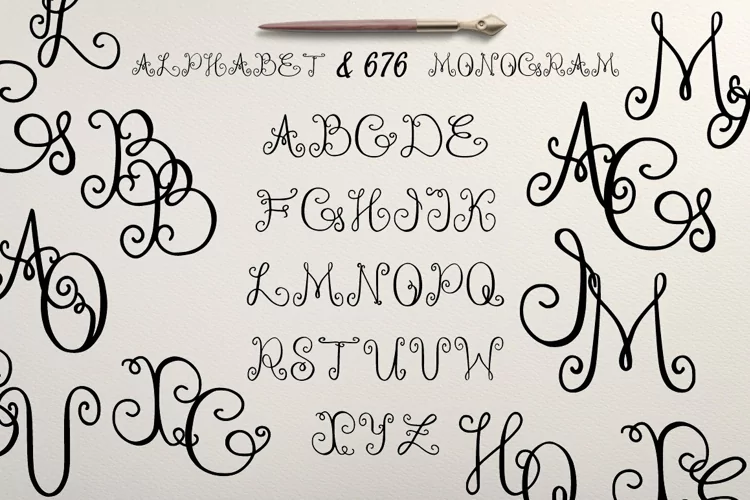 ALPHABET & 676 MONOGRAM
ABCDE
FGHIJK
LMNOPQ
RSTUVW
XYZ
BB
AO
AG
JM
XG
HO